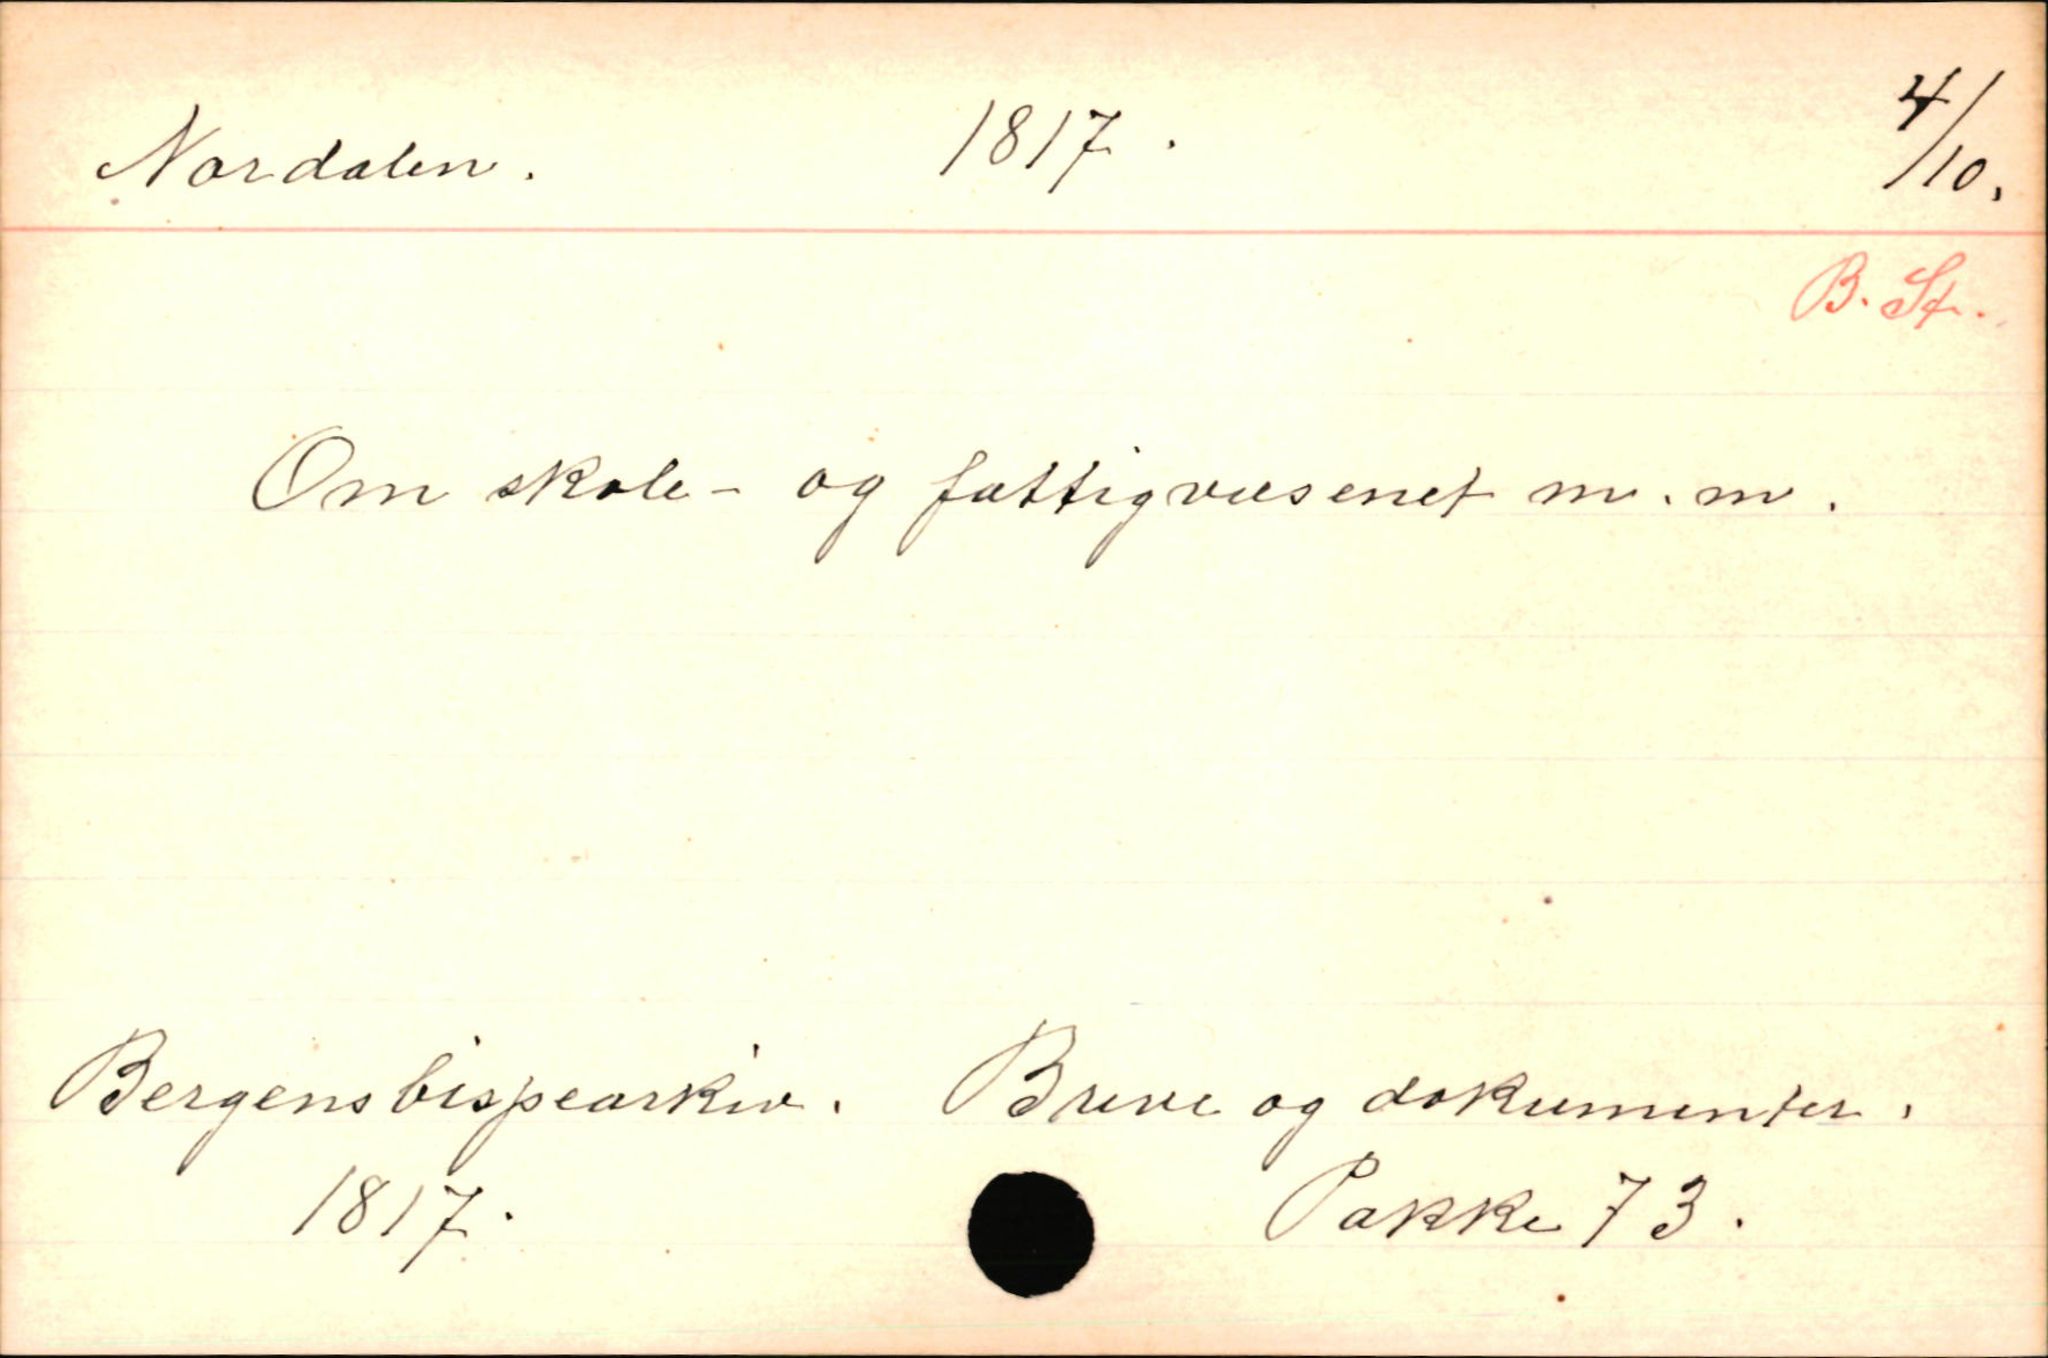 Nordalen. 1817. 4/10.
B. St.
Om skole- og fattigvæsenet m.m.
Bergens bispearkiv. Breve og dokumenter.
1817. Pakke 73.